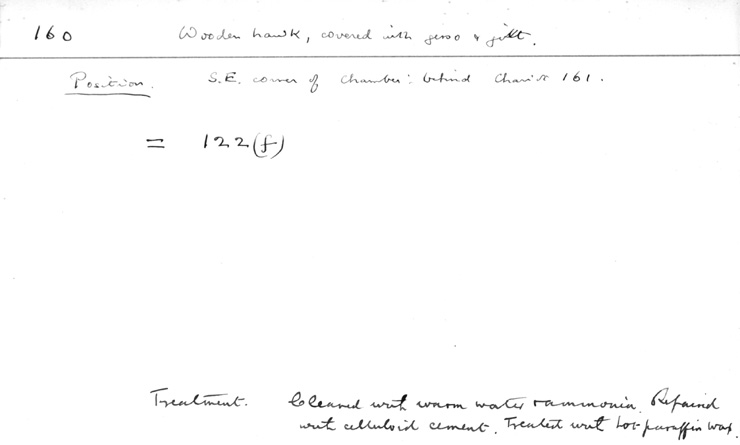 160 Wooden hawk, covered with gesso & gilt.
Position. S.E. corner of Chamber: behind Chariot 161.
= 122(f)
Treatment. Cleaned with warm water & ammonia. Repaired
with celluloid cement. Treated with hot paraffin wax.